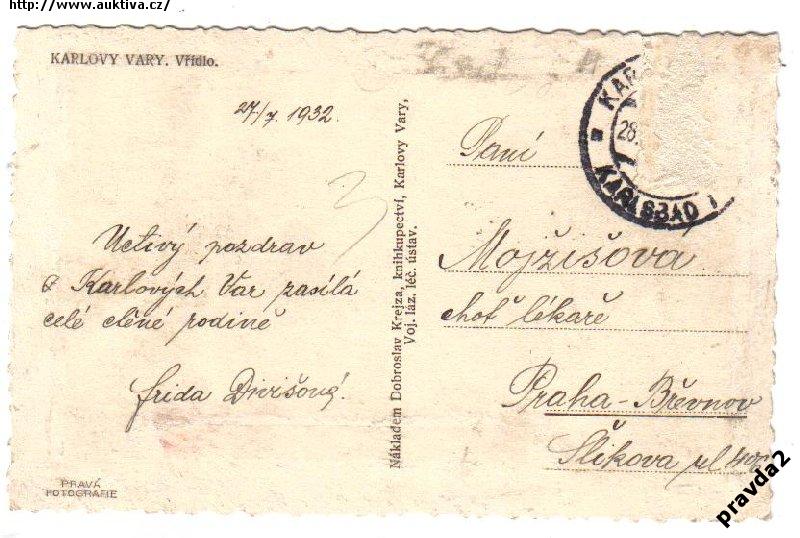 http://www.auktiva.cz/
KARLOVY VARY. Vřídlo.
27/7. 1932.
Uctivý pozdrav
z Karlových Var zasílá
celé ctěné rodině
Frida Divišová.
PRAVÁ
FOTOGRAFIE
Nákladem Dobroslav Krejza, knihkupectví, Karlovy Vary,
Voj. láz. léč. ústav.
KAR
28.
KARLSBAD 1
Paní
Mojžišová
choť lékaře
Praha-Břevnov
Šlikova ul
pravda2